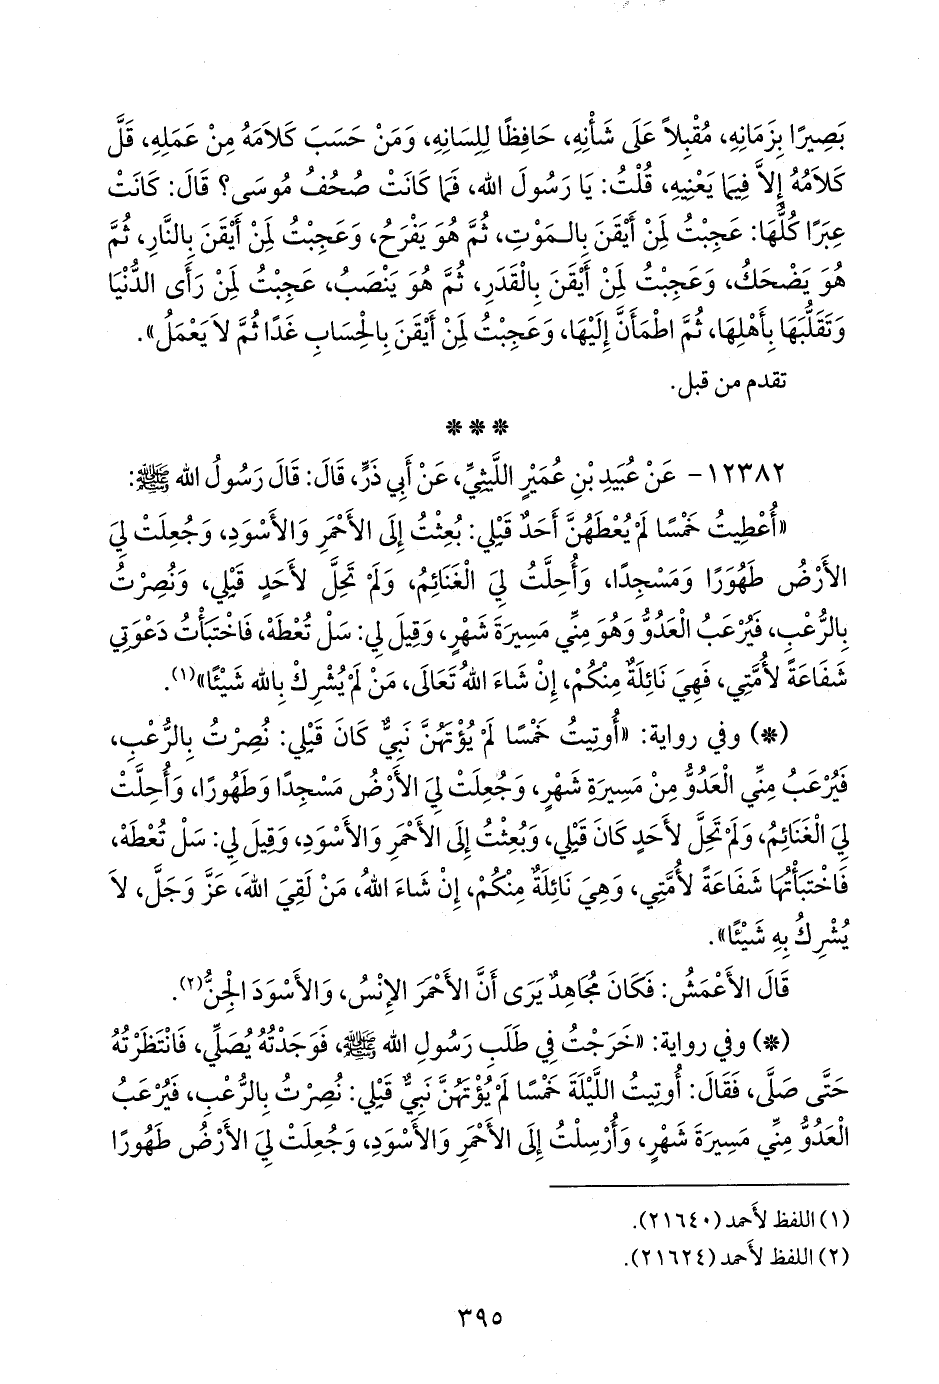 بَصِيرًا بِزَمَانِهِ، مُقْبِلاً عَلَى شَأْنِهِ، حَافِظًا لِلِسَانِهِ، وَمَنْ حَسَبَ كَلاَمَهُ مِنْ عَمَلِهِ، قَلَّ
كَلاَمُهُ إِلاَّ فِيمَا يَعْنِيهِ، قُلْتُ: يَا رَسُولَ الله، فَمَا كَانَتْ صُحُفُ مُوسَى؟ قَالَ: كَانَتْ
عِبَرًا كُلُّهَا: عَجِبْتُ لِمَنْ أَيْقَنَ بِالـمَوْتِ، ثُمَّ هُوَ يَفْرَحُ، وَعَجِبْتُ لِمَنْ أَيْقَنَ بِالنَّارِ، ثُمَّ
هُوَ يَضْحَكُ، وَعَجِبْتُ لِمَنْ أَيْقَنَ بِالْقَدَرِ، ثُمَّ هُوَ يَنْصَبُ، عَجِبْتُ لِمَنْ رَأَى الدُّنْيَا
وَتَقَلُّبَهَا بِأَهْلِهَا، ثُمَّ اطْمَأَنَّ إِلَيْهَا، وَعَجِبْتُ لِمَنْ أَيْقَنَ بِالْحِسَابِ غَدًا ثُمَّ لاَ يَعْمَلُ».
تقدم من قبل.
* * *
١٢٣٨٢- عَنْ عُبَيْدِ بْنِ عُمَيْرٍ اللَّيْثِيِّ، عَنْ أَبِي ذَرٍّ، قَالَ: قَالَ رَسُولُ الله ﷺ:
«أُعْطِيتُ خَمْسًا لَمْ يُعْطَهُنَّ أَحَدٌ قَبْلِي: بُعِثْتُ إِلَى الأَحْمَرِ وَالأَسْوَدِ، وَجُعِلَتْ لِيَ
الأَرْضُ طَهُورًا وَمَسْجِدًا، وَأُحِلَّتْ لِيَ الْغَنَائِمُ، وَلَمْ تَحِلَّ لأَحَدٍ قَبْلِي، وَنُصِرْتُ
بِالرُّعْبِ، فَيُرْعَبُ الْعَدُوُّ وَهُوَ مِنِّي مَسِيرَةَ شَهْرٍ، وَقِيلَ لِي: سَلْ تُعْطَهْ، فَاخْتَبَأْتُ دَعْوَتِي
شَفَاعَةً لأُمَّتِي، فَهِيَ نَائِلَةٌ مِنْكُمْ، إِنْ شَاءَ اللهُ تَعَالَى، مَنْ لَمْ يُشْرِكْ بِالله شَيْئًا»(١).
(*) وفي رواية: «أُوتِيتُ خَمْسًا لَمْ يُؤْتَهُنَّ نَبِيٌّ كَانَ قَبْلِي: نُصِرْتُ بِالرُّعْبِ،
فَيُرْعَبُ مِنِّي الْعَدُوُّ مِنْ مَسِيرَةِ شَهْرٍ، وَجُعِلَتْ لِيَ الأَرْضُ مَسْجِدًا وَطَهُورًا، وَأُحِلَّتْ
لِيَ الْغَنَائِمُ، وَلَمْ تَحِلَّ لأَحَدٍ كَانَ قَبْلِي، وَبُعِثْتُ إِلَى الأَحْمَرِ وَالأَسْوَدِ، وَقِيلَ لِي: سَلْ تُعْطَهْ،
فَاخْتَبَأْتُهَا شَفَاعَةً لأُمَّتِي، وَهِيَ نَائِلَةٌ مِنْكُمْ، إِنْ شَاءَ اللهُ، مَنْ لَقِيَ اللهَ، عَزَّ وَجَلَّ، لاَ
يُشْرِكُ بِهِ شَيْئًا».
قَالَ الأَعْمَشُ: فَكَانَ مُجَاهِدٌ يَرَى أَنَّ الأَحْمَرَ الإِنْسُ، وَالأَسْوَدَ الْجِنُّ(٢).
(*) وفي رواية: «خَرَجْتُ فِي طَلَبِ رَسُولِ الله ﷺ، فَوَجَدْتُهُ يُصَلِّي، فَانْتَظَرْتُهُ
حَتَّى صَلَّى، فَقَالَ: أُوتِيتُ اللَّيْلَةَ خَمْسًا لَمْ يُؤْتَهُنَّ نَبِيٌّ قَبْلِي: نُصِرْتُ بِالرُّعْبِ، فَيُرْعَبُ
الْعَدُوُّ مِنِّي مَسِيرَةَ شَهْرٍ، وَأُرْسِلْتُ إِلَى الأَحْمَرِ وَالأَسْوَدِ، وَجُعِلَتْ لِيَ الأَرْضُ طَهُورًا
(١) اللفظ لأَحمد (٢١٦٤٠).
(٢) اللفظ لأَحمد (٢١٦٢٤).
٣٩٥